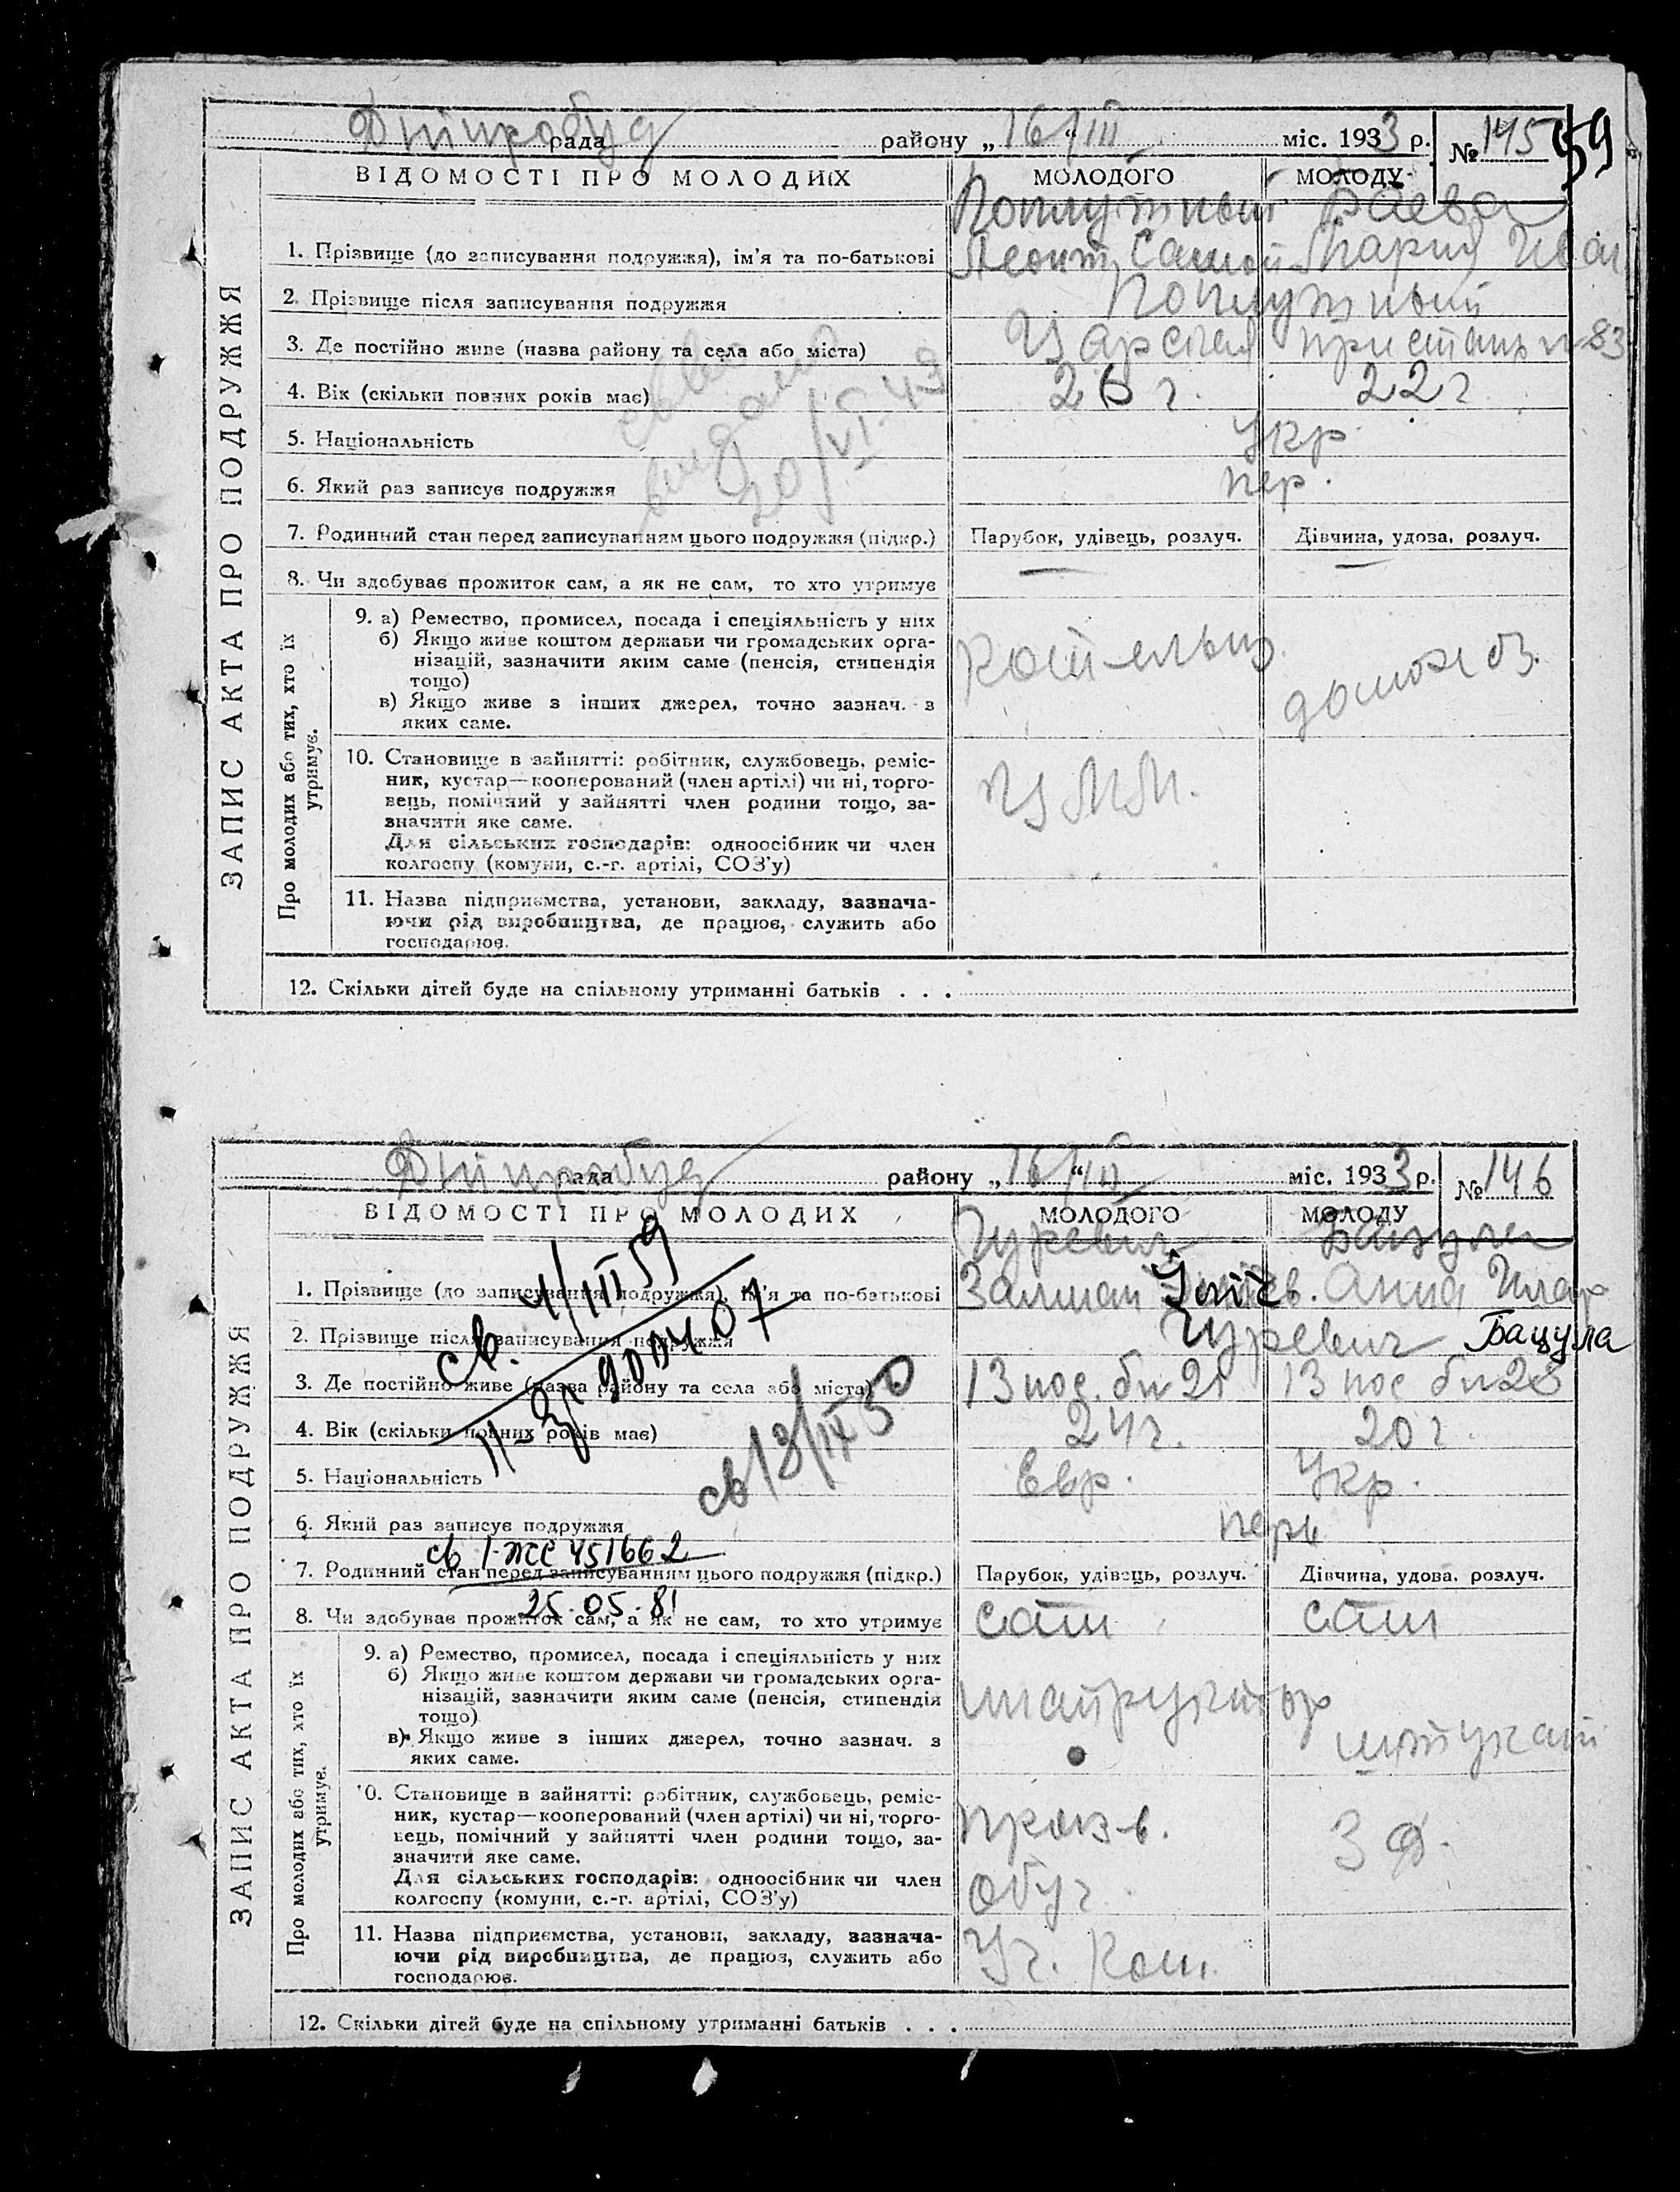 Дніпробуд рада району „16/III міс. 1933 р. № 145
59
ВІДОМОСТІ ПРО МОЛОДИХ МОЛОДОГО МОЛОДУ
Поплужный Раева
1. Прізвище (до записування подружжя), ім'я та по-батькові Леонт. Самой Мария Иван
2. Прізвище після записування подружжя Поплужный
3. Де постійно живе (назва району та села або міста) Царская пристань 83
4. Вік (скільки повних років має) 26 г. 22 г
5. Національність Укр.
6. Який раз записує подружжя пер.
видано
20/VI.43
7. Родинний стан перед записуванням цього подружжя (підкр.) Парубок, удівець, розлуч. Дівчина, удова, розлуч.
8. Чи здобуває прожиток сам, а як не сам, то хто утримує
ЗАПИС АКТА ПРО ПОДРУЖЖЯ
Про молодих або тих, хто їх утримує.
9. а) Ремество, промисел, посада і спеціяльність у них
б) Якщо живе коштом держави чи громадських орга-
нізацій, зазначити яким саме (пенсія, стипендія
тощо)
в) Якщо живе з інших джерел, точно зазнач. з
яких саме.
котельщ. домохоз.
10. Становище в зайнятті: робітник, службовець, реміс-
ник, кустар—кооперований (член артілі) чи ні, торго-
вець, помічний у зайнятті член родини тощо, за-
значити яке саме.
Для сільських господарів: одноосібник чи член
колгоспу (комуни, с.-г. артілі, СОЗ'у)
11. Назва підприємства, установи, закладу, зазнача-
ючи рід виробництва, де працює, служить або
господарює.
12. Скільки дітей буде на спільному утриманні батьків . . .
Дніпробуд рада району „16/III“ міс. 1933 р. № 146
ВІДОМОСТІ ПРО МОЛОДИХ МОЛОДОГО МОЛОДУ
Гуревич Бацула
1. Прізвище (до записування подружжя), ім'я та по-батькові Залман Анна Илар
2. Прізвище після записування подружжя Гуревич Бацула
3. Де постійно живе (назва району та села або міста) 13 пос. б н 21 13 пос б н 28
4. Вік (скільки повних років має) 24 г. 20 г.
5. Національність Евр. Укр.
6. Який раз записує подружжя перв
св. 4/III 59
900407
св 13/IX 50
св I-ЖС 451662
25.05.81
7. Родинний стан перед записуванням цього подружжя (підкр.) Парубок, удівець, розлуч. Дівчина, удова, розлуч.
8. Чи здобуває прожиток сам, а як не сам, то хто утримує сам сам
ЗАПИС АКТА ПРО ПОДРУЖЖЯ
Про молодих або тих, хто їх утримує.
9. а) Ремество, промисел, посада і спеціяльність у них
б) Якщо живе коштом держави чи громадських орга-
нізацій, зазначити яким саме (пенсія, стипендія
тощо)
в) Якщо живе з інших джерел, точно зазнач. з
яких саме.
штукат
10. Становище в зайнятті: робітник, службовець, реміс-
ник, кустар—кооперований (член артілі) чи ні, торго-
вець, помічний у зайнятті член родини тощо, за-
значити яке саме.
Для сільських господарів: одноосібник чи член
колгоспу (комуни, с.-г. артілі, СОЗ'у)
произ-в. З Ф.
обуч.
11. Назва підприємства, установи, закладу, зазнача-
ючи рід виробництва, де працює, служить або
господарює.
Уч. Ком.
12. Скільки дітей буде на спільному утриманні батьків . . .